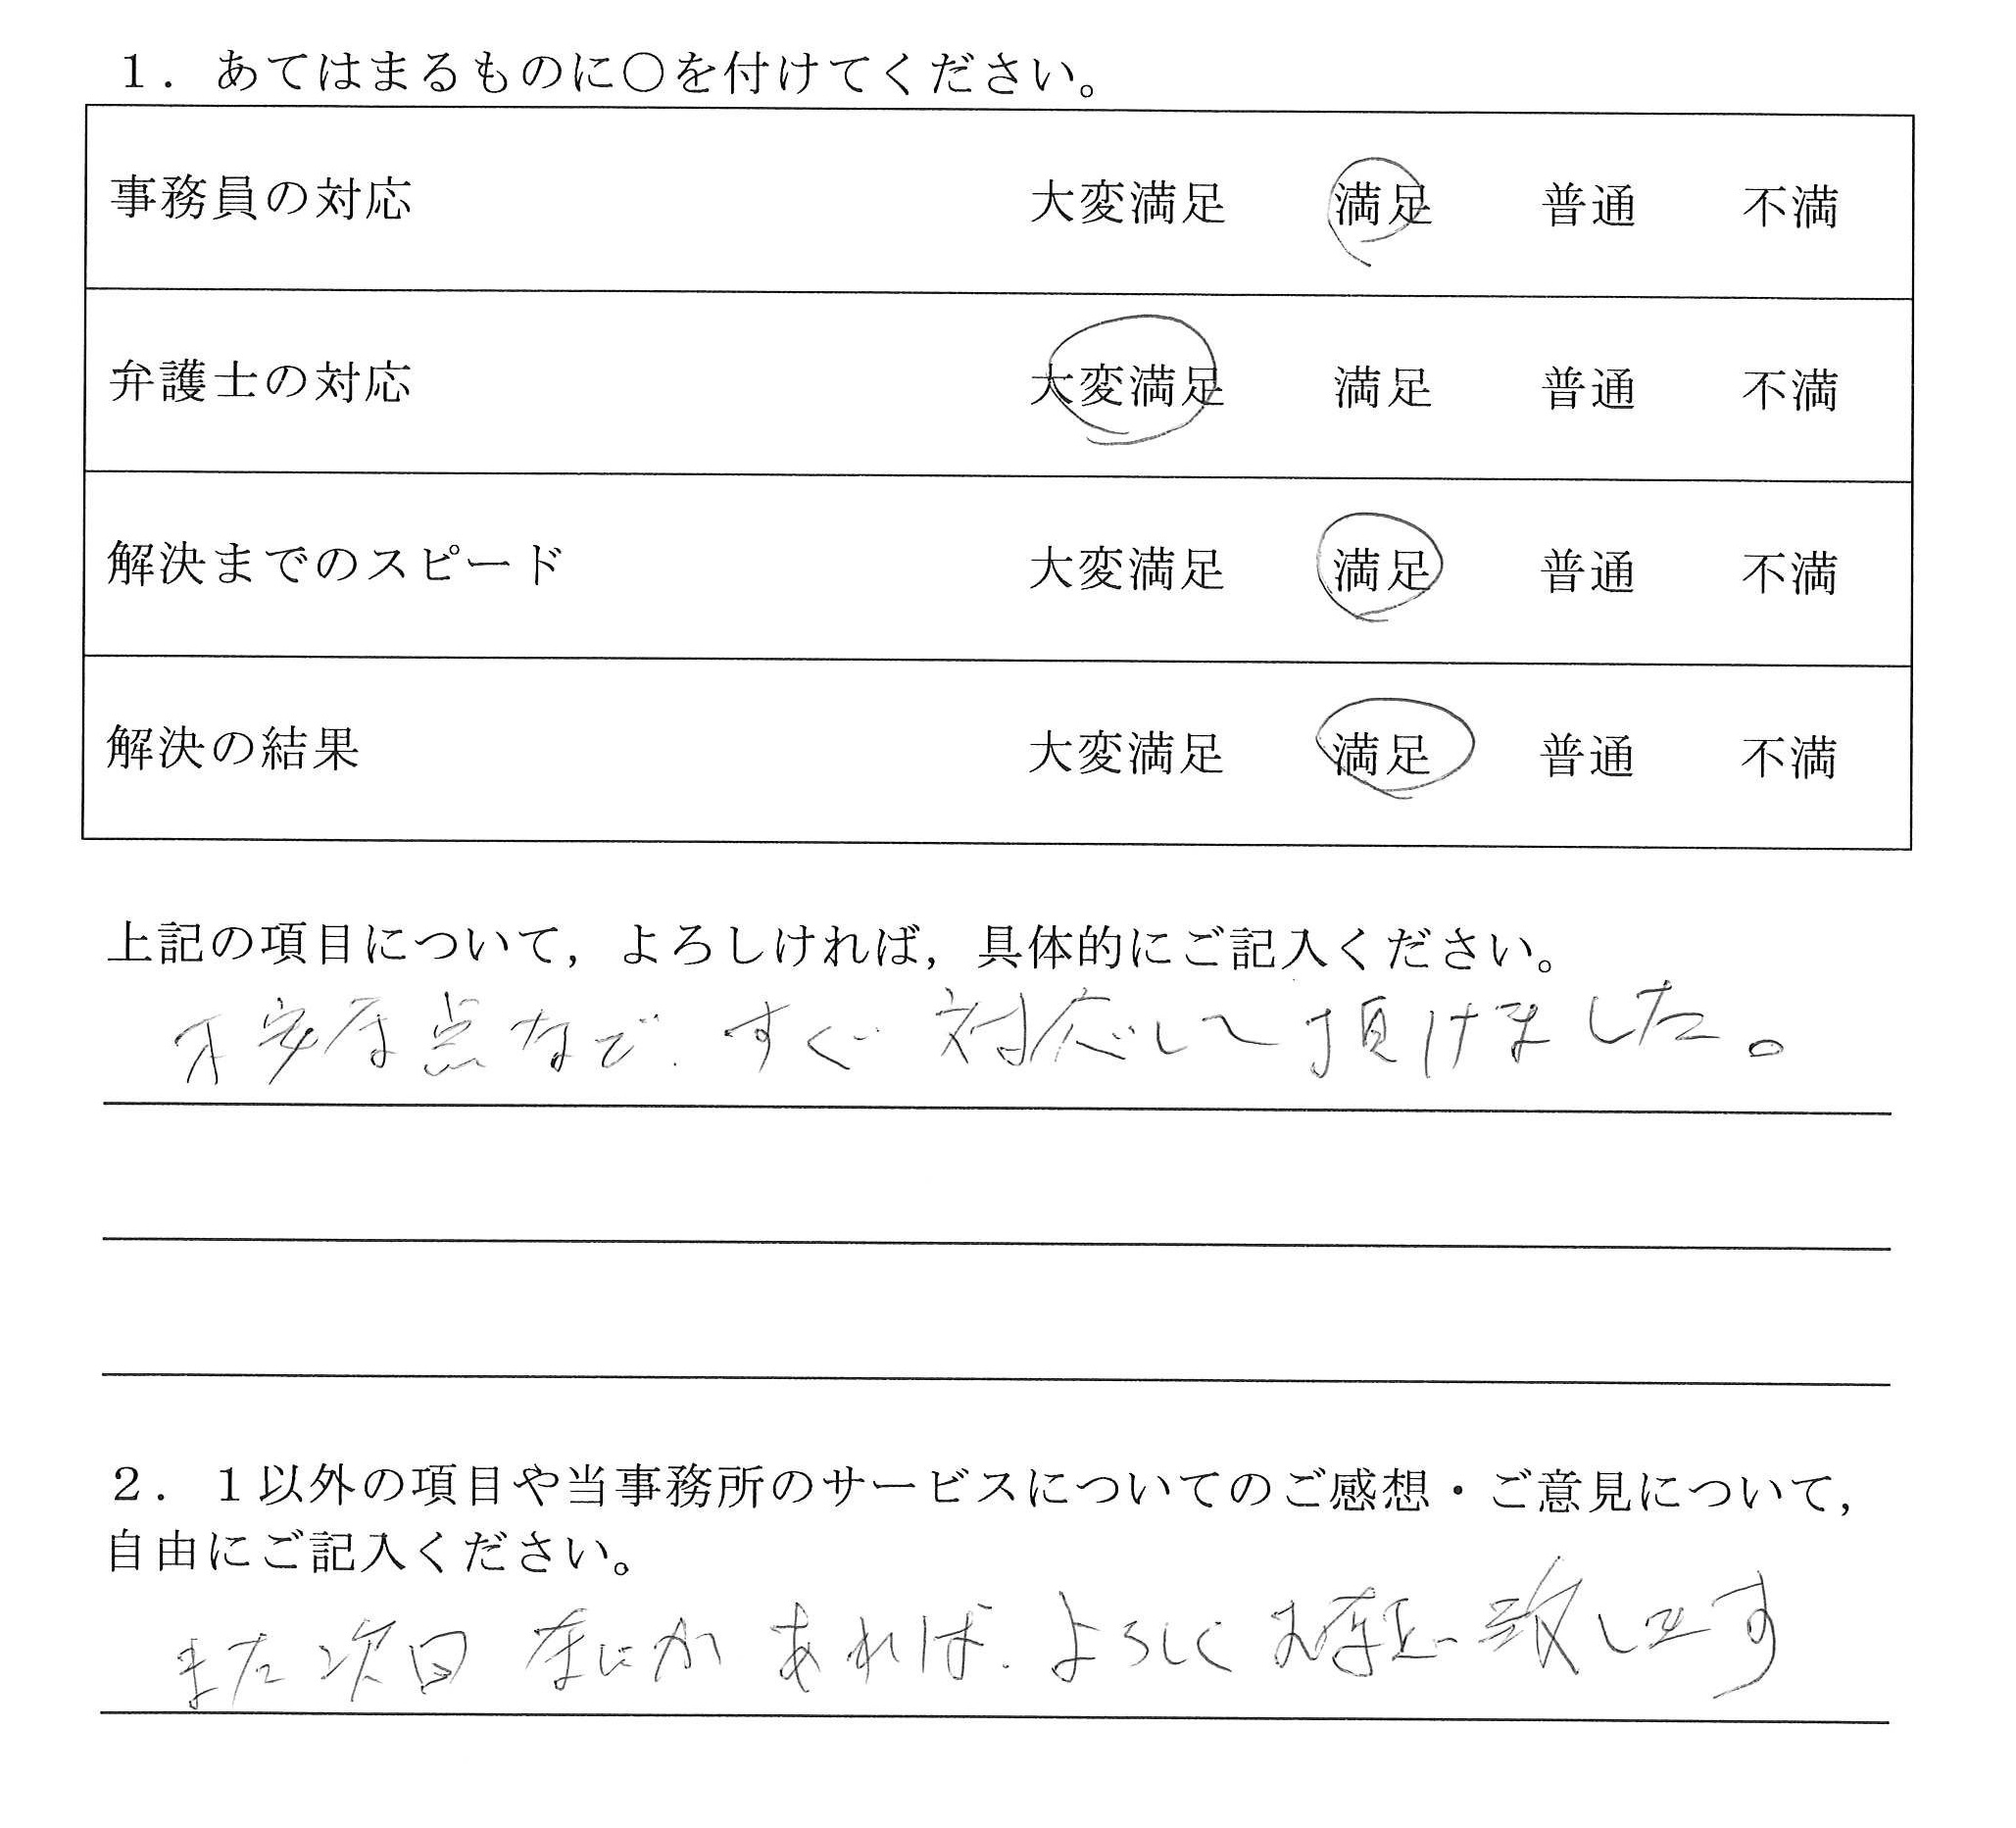 １．あてはまるものに○を付けてください。
事務員の対応 大変満足 満足 普通 不満
弁護士の対応 大変満足 満足 普通 不満
解決までのスピード 大変満足 満足 普通 不満
解決の結果 大変満足 満足 普通 不満
上記の項目について，よろしければ，具体的にご記入ください。
不安な点など、すぐ対応して頂けました。
２．１以外の項目や当事務所のサービスについてのご感想・ご意見について，
自由にご記入ください。
また次回なにかあれば、よろしくお願い致します